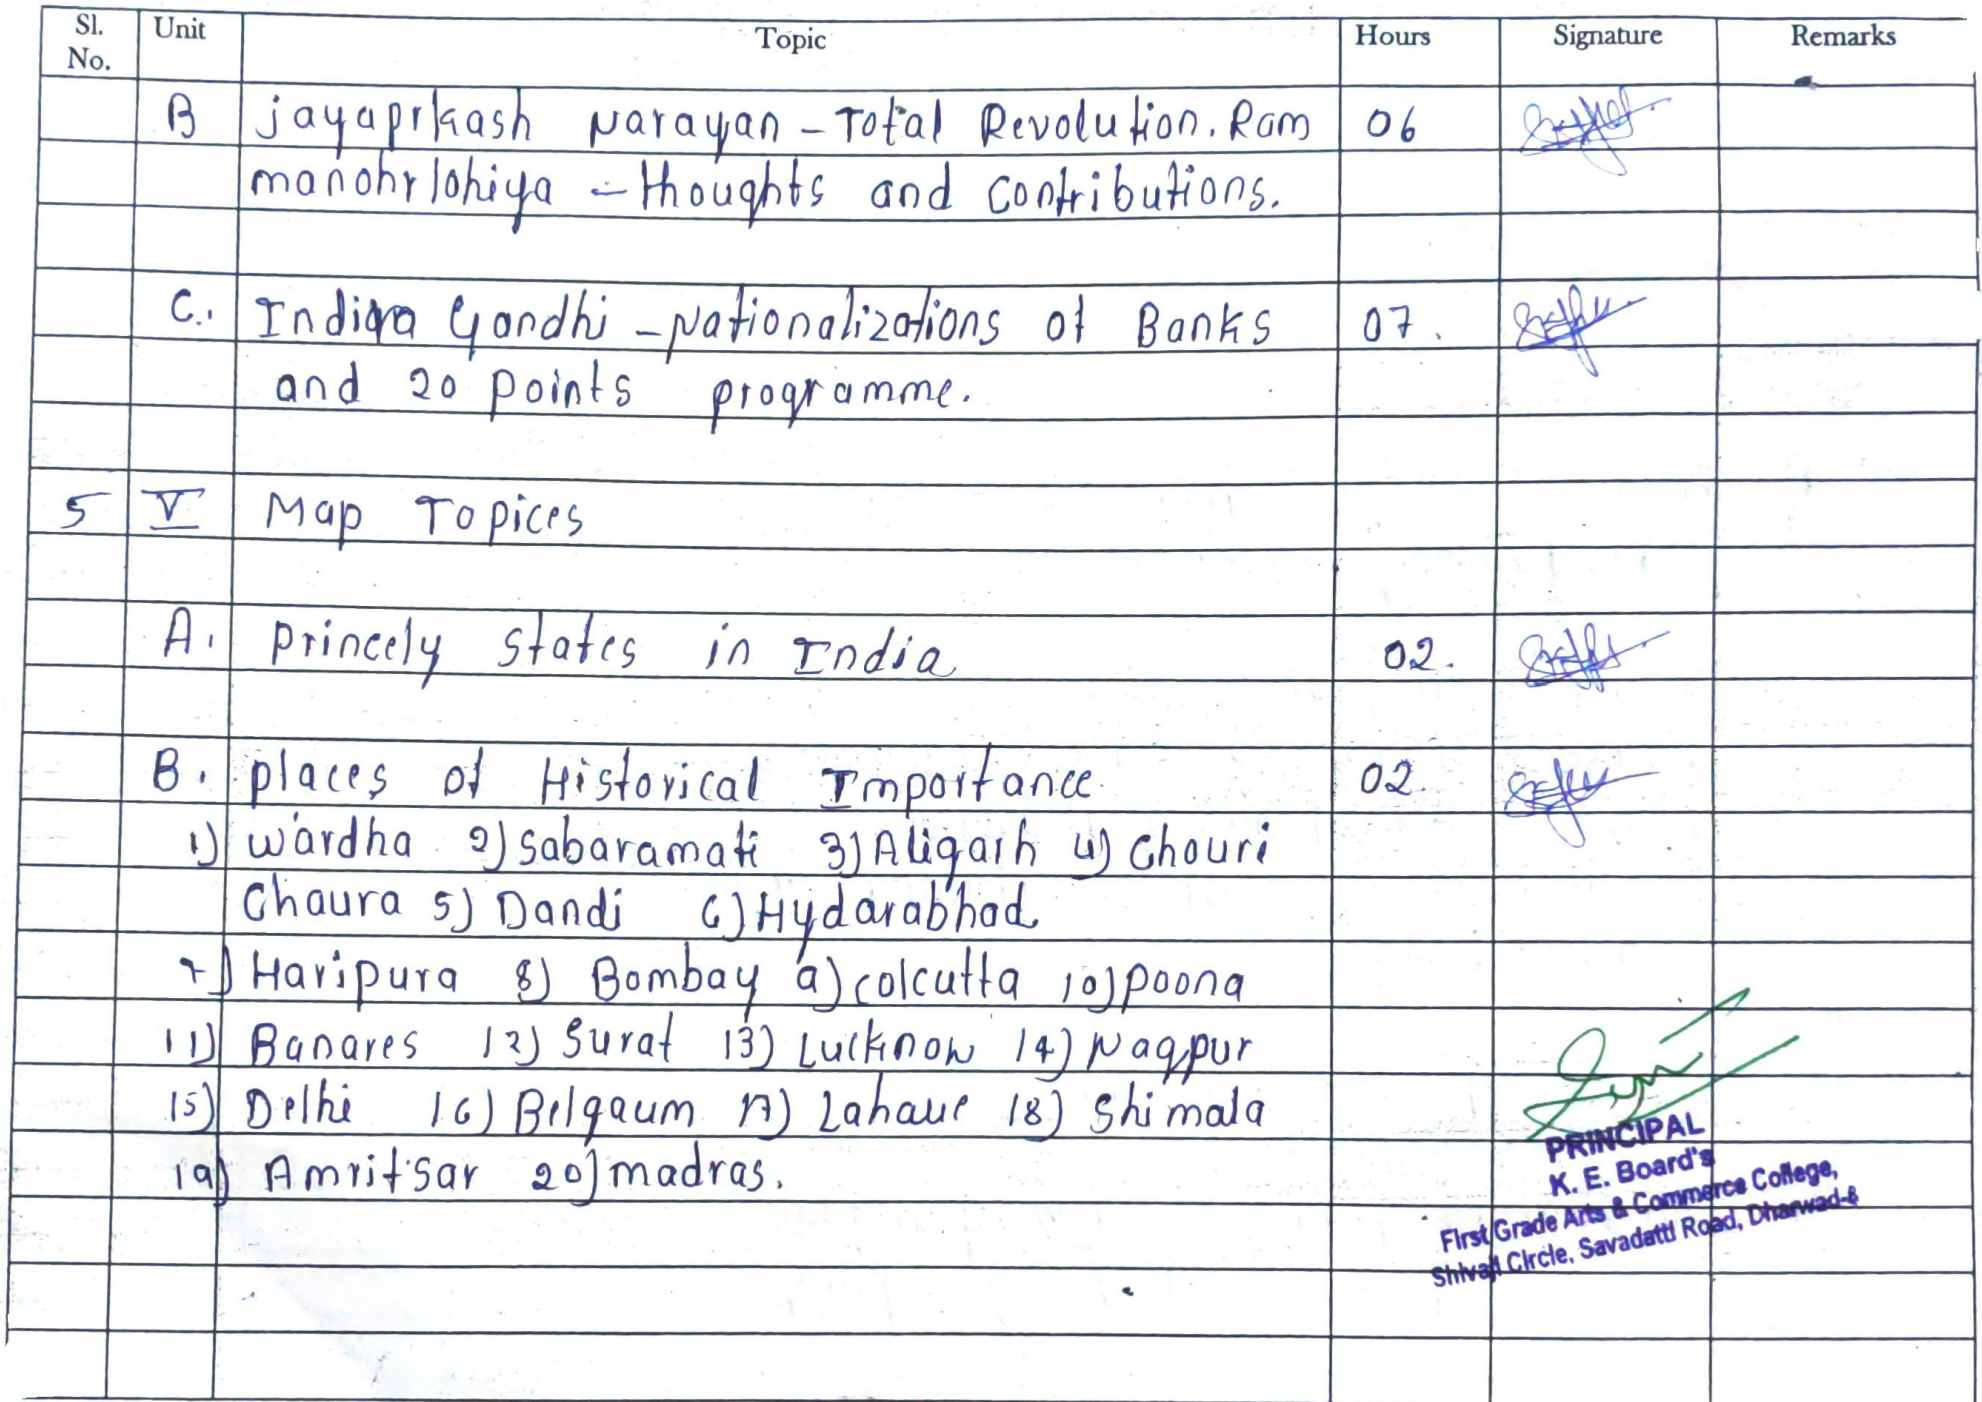 Sl. No. Unit Topic Hours Signature Remarks
B jayaprkash Narayan - Total Revolution. Ram 06
manohrlohiya - thoughts and Contributions.
C. Indira Gandhi - Nationalizations of Banks 07.
and 20 points programme.
5 V Map Topices
A. princely states in India 02.
B. places of Historical Importance 02.
1) wardha 2) Sabaramati 3) Aligarh 4) Chouri
Chaura 5) Dandi 6) Hydarabhad
7) Haripura 8) Bombay 9) colcutta 10) poona
11) Banares 12) Surat 13) Lucknow 14) Nagpur
15) Delhi 16) Belgaum 17) Lahaur 18) Shimala
19) Amritsar 20) madras.
PRINCIPAL
K. E. Board's
First Grade Arts & Commerce College,
Shivaji Circle, Savadatti Road, Dharwad-8